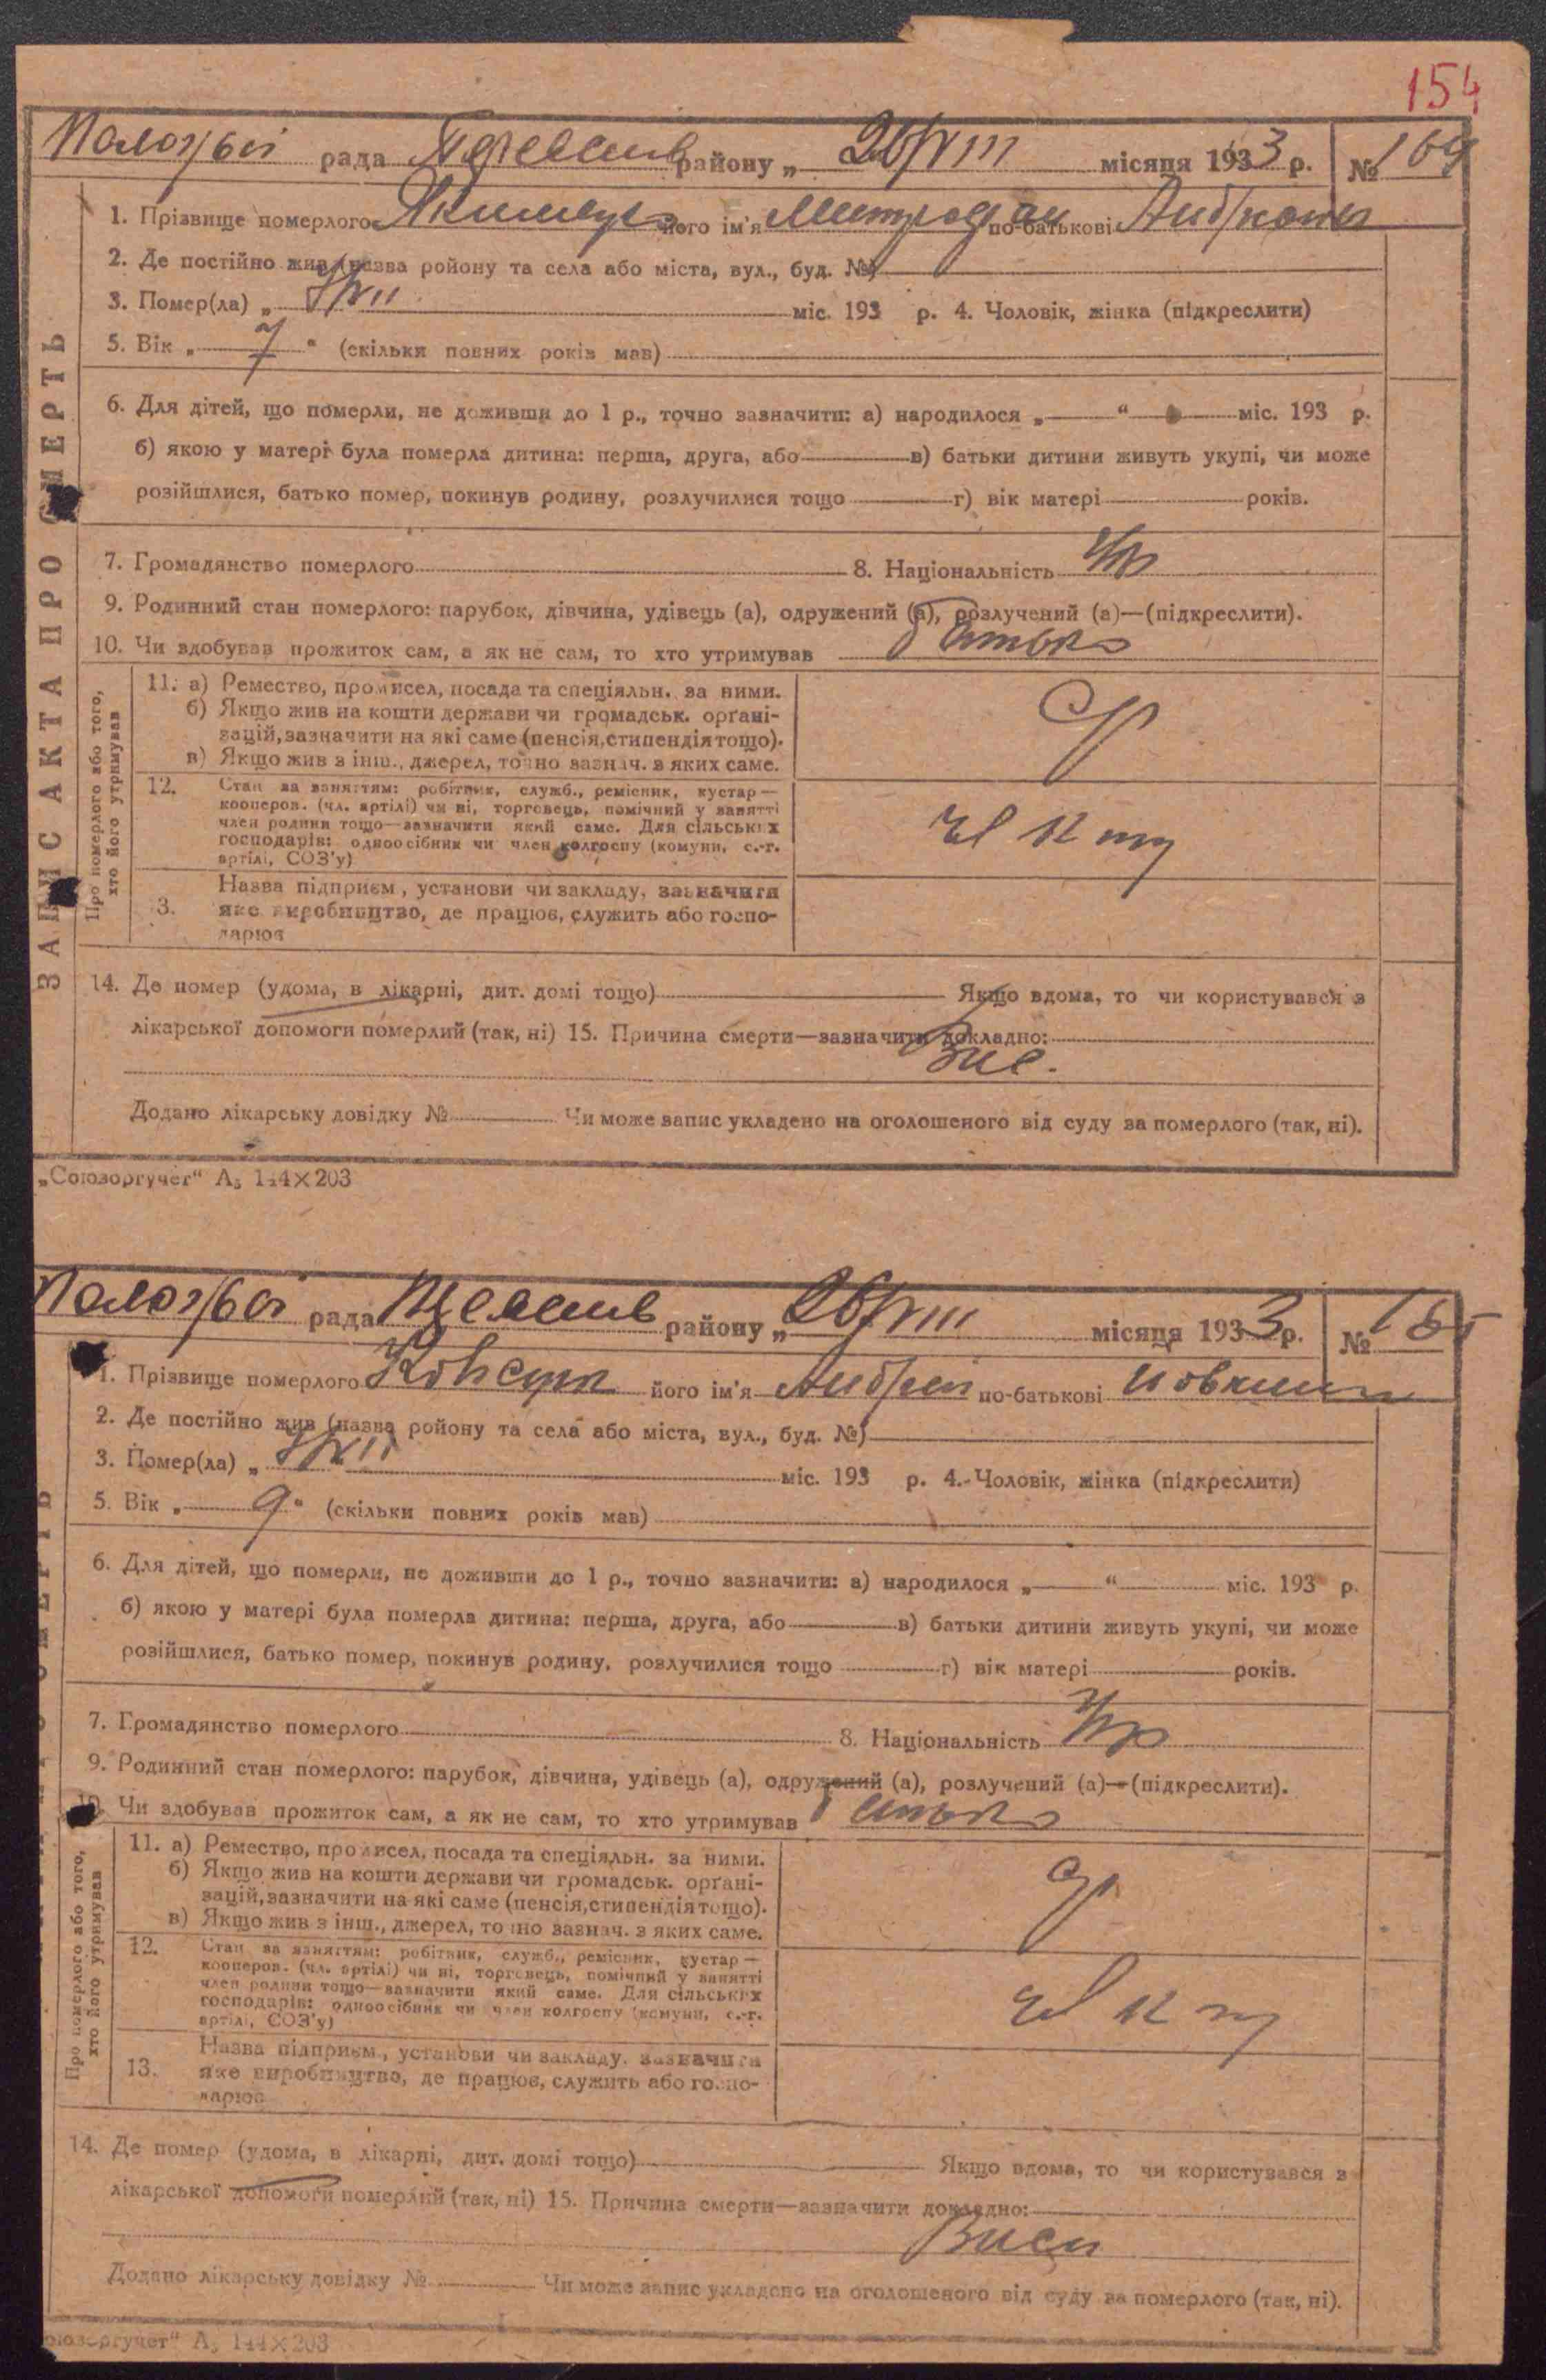 154
рада району „ 26/VIII місяця 1933 р. № 164
1. Прізвище померлого його ім'я Митрофан по-батькові
2. Де постійно жив (назва ройону та села або міста, вул., буд. №)
3. Помер(ла) „ міс. 193 р. 4. Чоловік, жінка (підкреслити)
5. Вік „ 7 “ (скільки повних років мав)
6. Для дітей, що померли, не доживши до 1 р., точно зазначити: а) народилося „ “ міс. 193 р.
б) якою у матері була померла дитина: перша, друга, або в) батьки дитини живуть укупі, чи може
розійшлися, батько помер, покинув родину, розлучилися тощо г) вік матері років.
7. Громадянство померлого 8. Національність Укр
9. Родинний стан померлого: парубок, дівчина, удівець (а), одружений (а), розлучений (а)—(підкреслити).
10. Чи здобував прожиток сам, а як не сам, то хто утримував батько
ЗАПИС АКТА ПРО СМЕРТЬ
Про померлого або того,
хто його утримував
11. а) Ремество, промисел, посада та спеціяльн. за ними.
б) Якщо жив на кошти держави чи громадськ. орґані-
зацій, зазначити на які саме (пенсія, стипендія тощо).
в) Якщо жив з інш., джерел, точно зазнач. з яких саме.
12. Стан за заняттям: робітник, служб., ремісник, кустар —
кооперов. (чл. артілі) чи ні, торговець, помічний у занятті
член родини тощо—зазначити який саме. Для сільських
господарів: одноосібник чи член колгоспу (комуни, с.-г.
артілі, СОЗ'у)
3. Назва підприєм., установи чи закладу, зазначити
яке виробництво, де працює, служить або госпо-
дарює
14. Де помер (удома, в лікарні, дит. домі тощо) Якщо вдома, то чи користувався з
лікарської допомоги померлий (так, ні) 15. Причина смерти—зазначити докладно:
Додано лікарську довідку № Чи може запис укладено на оголошеного від суду за померлого (так, ні).
„Союзоргучет“ А₅ 144×203
рада району „ 26/VIII місяця 1933 р. № 165
1. Прізвище померлого його ім'я Андрій по-батькові
2. Де постійно жив (назва ройону та села або міста, вул., буд. №)
3. Помер(ла) „ міс. 193 р. 4. Чоловік, жінка (підкреслити)
5. Вік „ 9 “ (скільки повних років мав)
6. Для дітей, що померли, не доживши до 1 р., точно зазначити: а) народилося „ “ міс. 193 р.
б) якою у матері була померла дитина: перша, друга, або в) батьки дитини живуть укупі, чи може
розійшлися, батько помер, покинув родину, розлучилися тощо г) вік матері років.
7. Громадянство померлого 8. Національність Укр
9. Родинний стан померлого: парубок, дівчина, удівець (а), одружений (а), розлучений (а)—(підкреслити).
Чи здобував прожиток сам, а як не сам, то хто утримував батько
Про померлого або того,
хто його утримував
11. а) Ремество, промисел, посада та спеціяльн. за ними.
б) Якщо жив на кошти держави чи громадськ. орґані-
зацій, зазначити на які саме (пенсія, стипендія тощо).
в) Якщо жив з інш., джерел, точно зазнач. з яких саме.
12. Стан за заняттям: робітник, служб., ремісник, кустар —
кооперов. (чл. артілі) чи ні, торговець, помічний у занятті
член родини тощо—зазначити який саме. Для сільських
господарів: одноосібник чи член колгоспу (комуни, с.-г.
артілі, СОЗ'у)
13. Назва підприєм., установи чи закладу, зазначити
яке виробництво, де працює, служить або госпо-
дарює
14. Де помер (удома, в лікарні, дит. домі тощо) Якщо вдома, то чи користувався з
лікарської допомоги померлий (так, ні) 15. Причина смерти—зазначити докладно:
Додано лікарську довідку № Чи може запис укладено на оголошеного від суду за померлого (так, ні).
А₅ 144×203